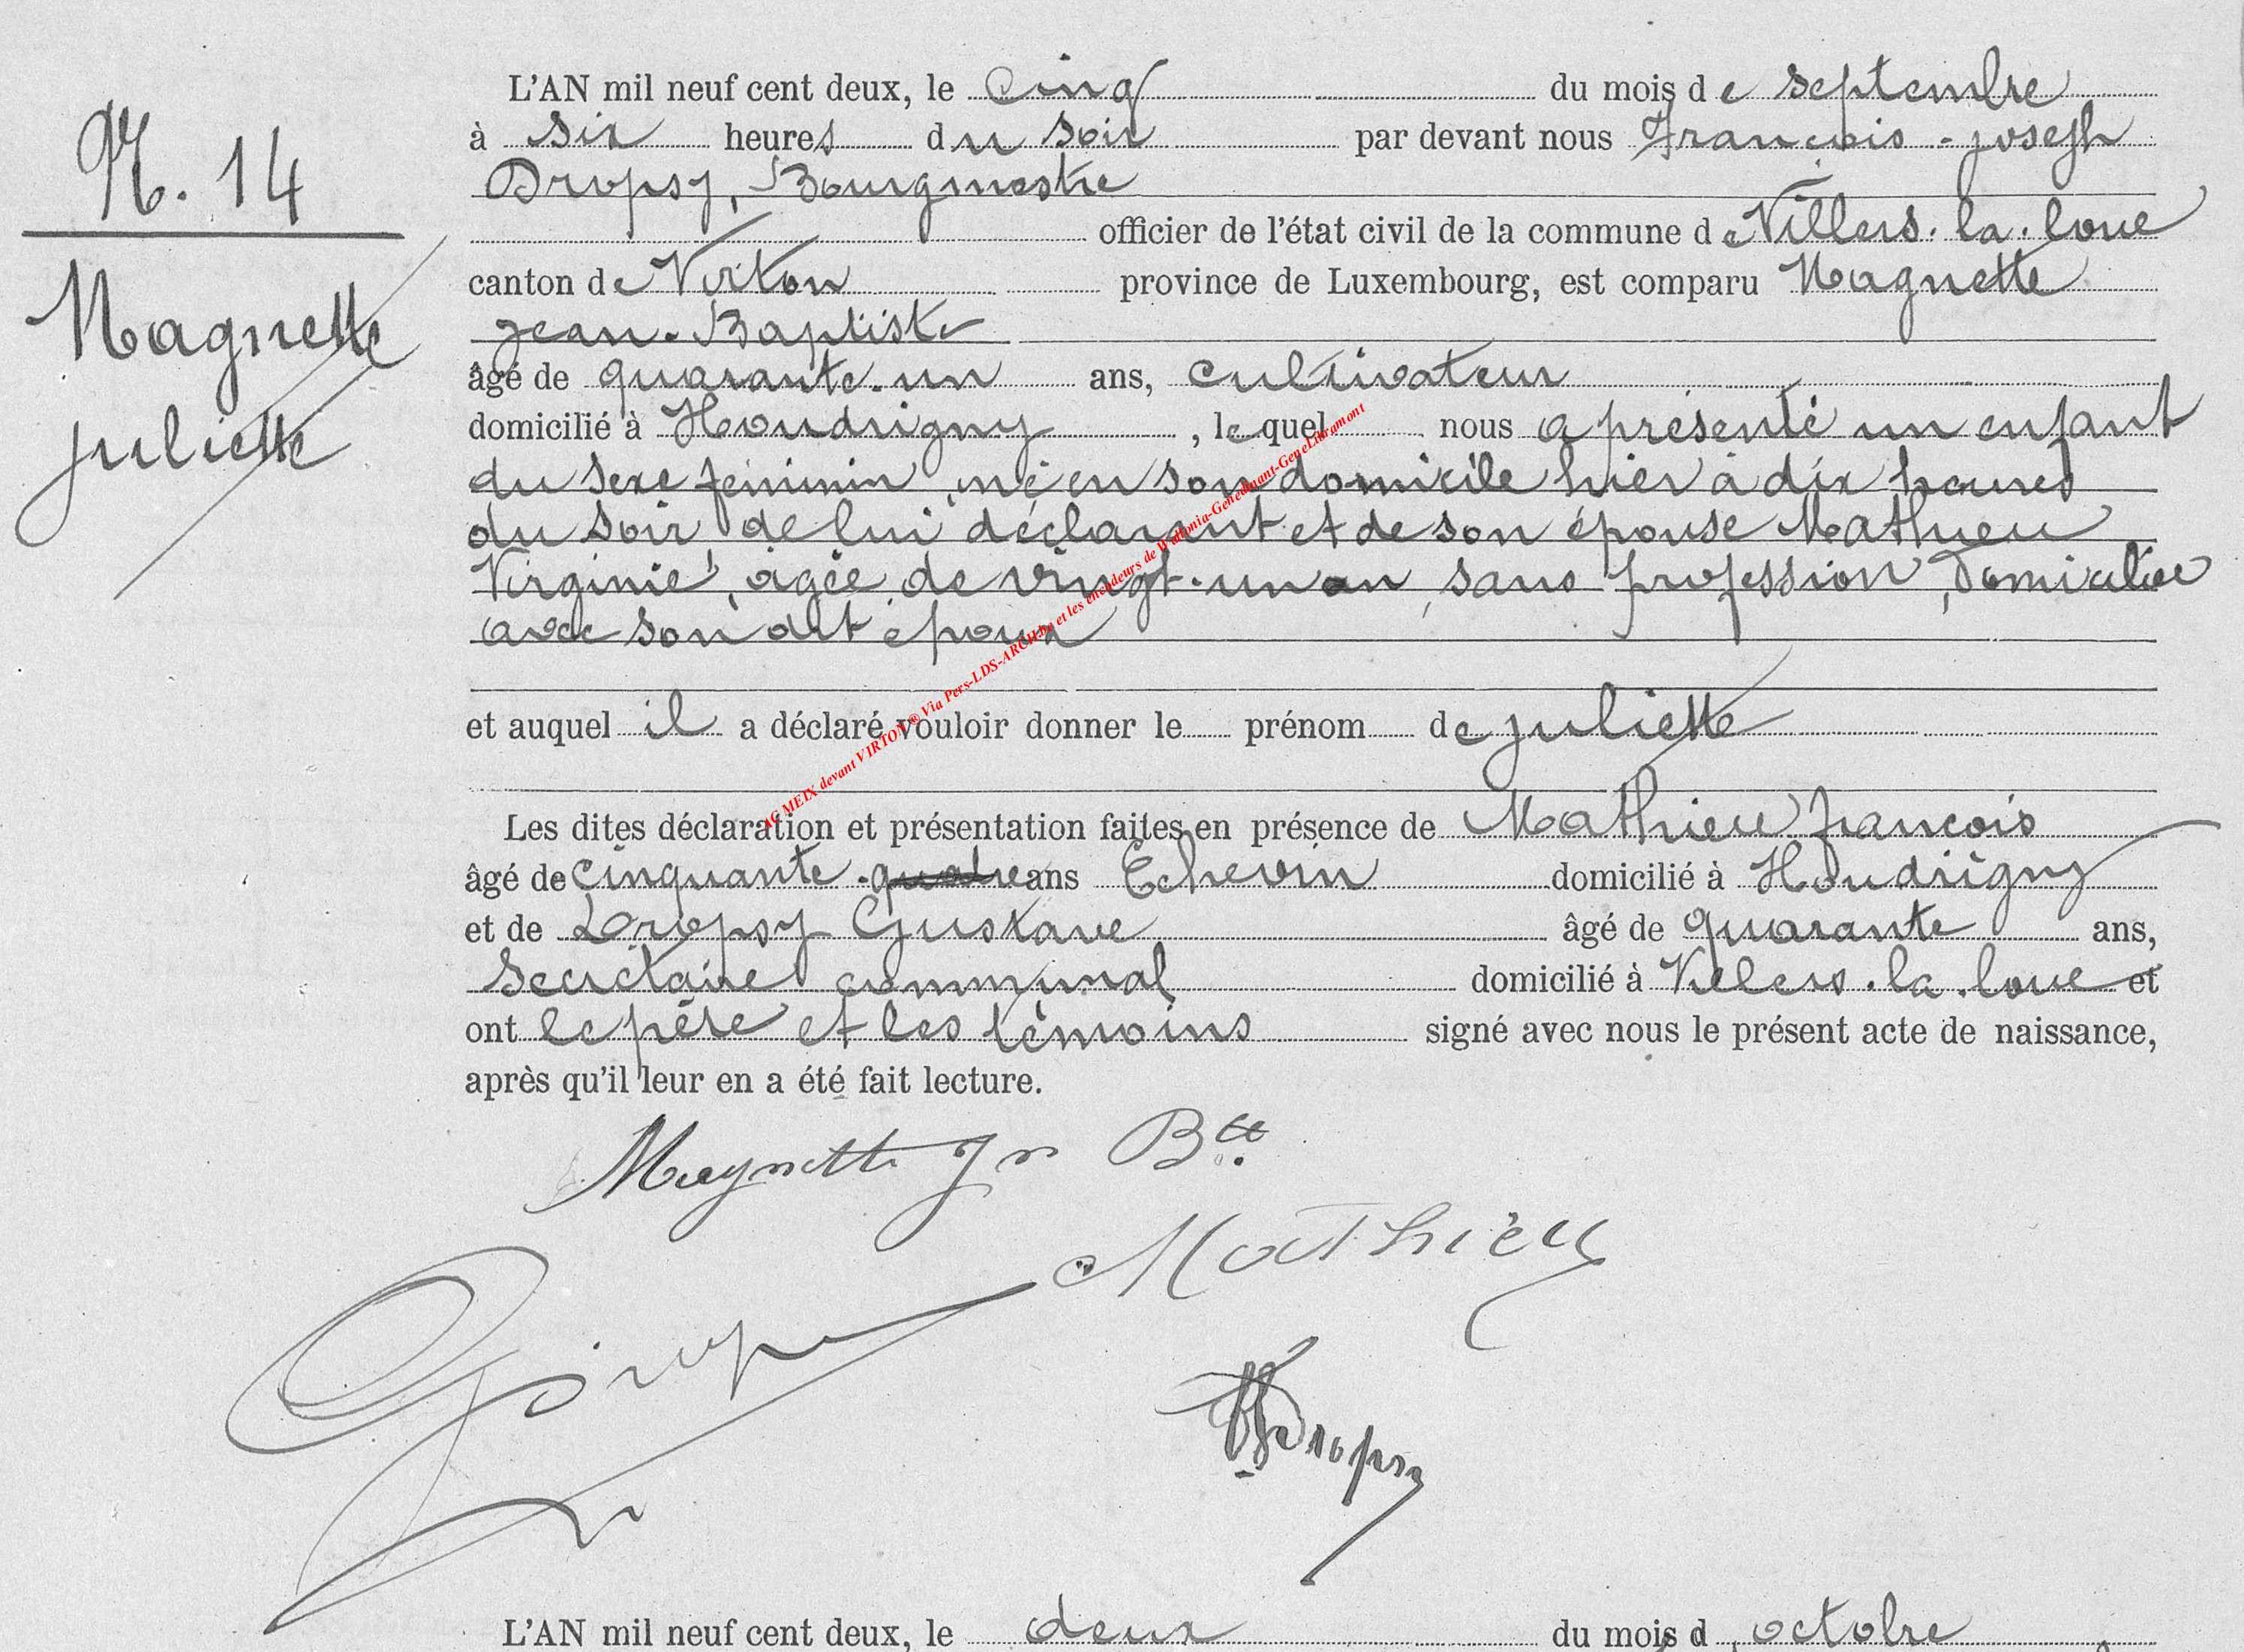 N. 14
Magnette
juliette
L'AN mil neuf cent deux, le cinq du mois de septembre
à six heures du soir par devant nous François-joseph
Dropsy, Bourgmestre
officier de l'état civil de la commune de Villers-la-loue
canton de Virton province de Luxembourg, est comparu Magnette
jean-Baptiste
âgé de quarante-un ans, cultivateur
domicilié à Houdrigny, lequel nous a présenté un enfant
du sexe féminin, né en son domicile hier à dix heures
du soir, de lui déclarant et de son épouse Mathieu
Virginie, agée de vingt-un an, sans profession, domiciliée
avec son dit époux
et auquel il a déclaré vouloir donner le prénom de juliette
Les dites déclaration et présentation faites en présence de Mathieu françois
âgé de cinquante-quatre ans Echevin domicilié à Houdrigny
et de Dropsy Gustave âgé de quarante ans,
Secrétaire communal domicilié à Villers-la-loue et
ont le père et les témoins signé avec nous le présent acte de naissance,
après qu'il leur en a été fait lecture.
Magnette Jn Bte
Mathieu
Dropsy
Dropsy
L'AN mil neuf cent deux, le deux du mois d octobre
AC MEIX devant VIRTON ® Via Pers-LDS-ARCH.be et les encodeurs de Wallonia-Genedinant-GeneLibramont